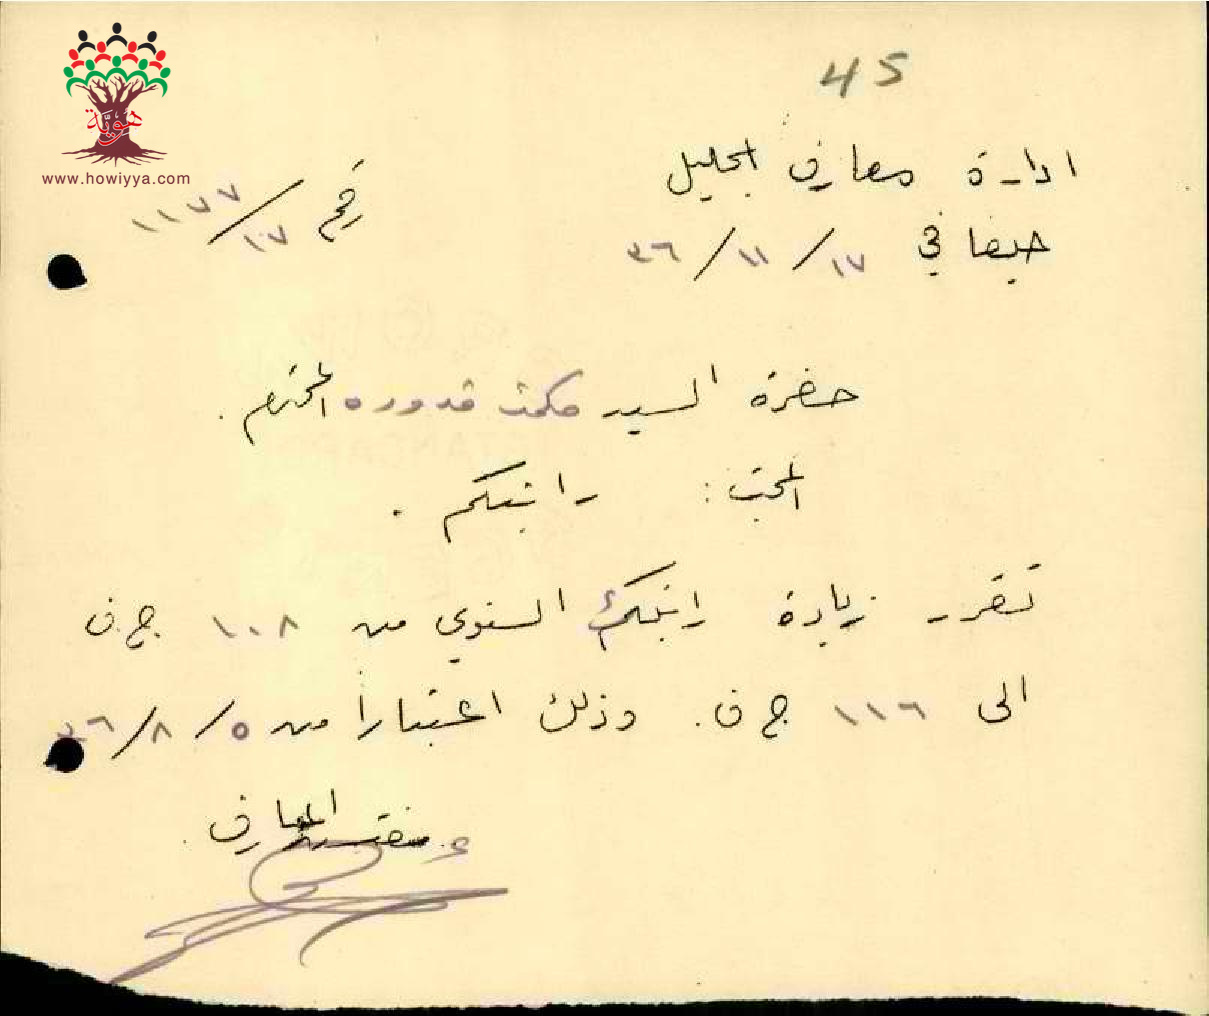 هويّة
www.howiyya.com
45
ادارة معارف الجليل
رقم ١١٧٧/١٠٧
حيفا في ١٧/١١/٣٦
حضرة السيد حكمت قدوره المحترم.
المبحث: راتبكم.
تقرر زيادة راتبكم السنوي من ١٠٨ ج.ف
الى ١١٦ ج.ف. وذلك اعتبارا من ٥/٨/٣٦
مفتش المعارف.